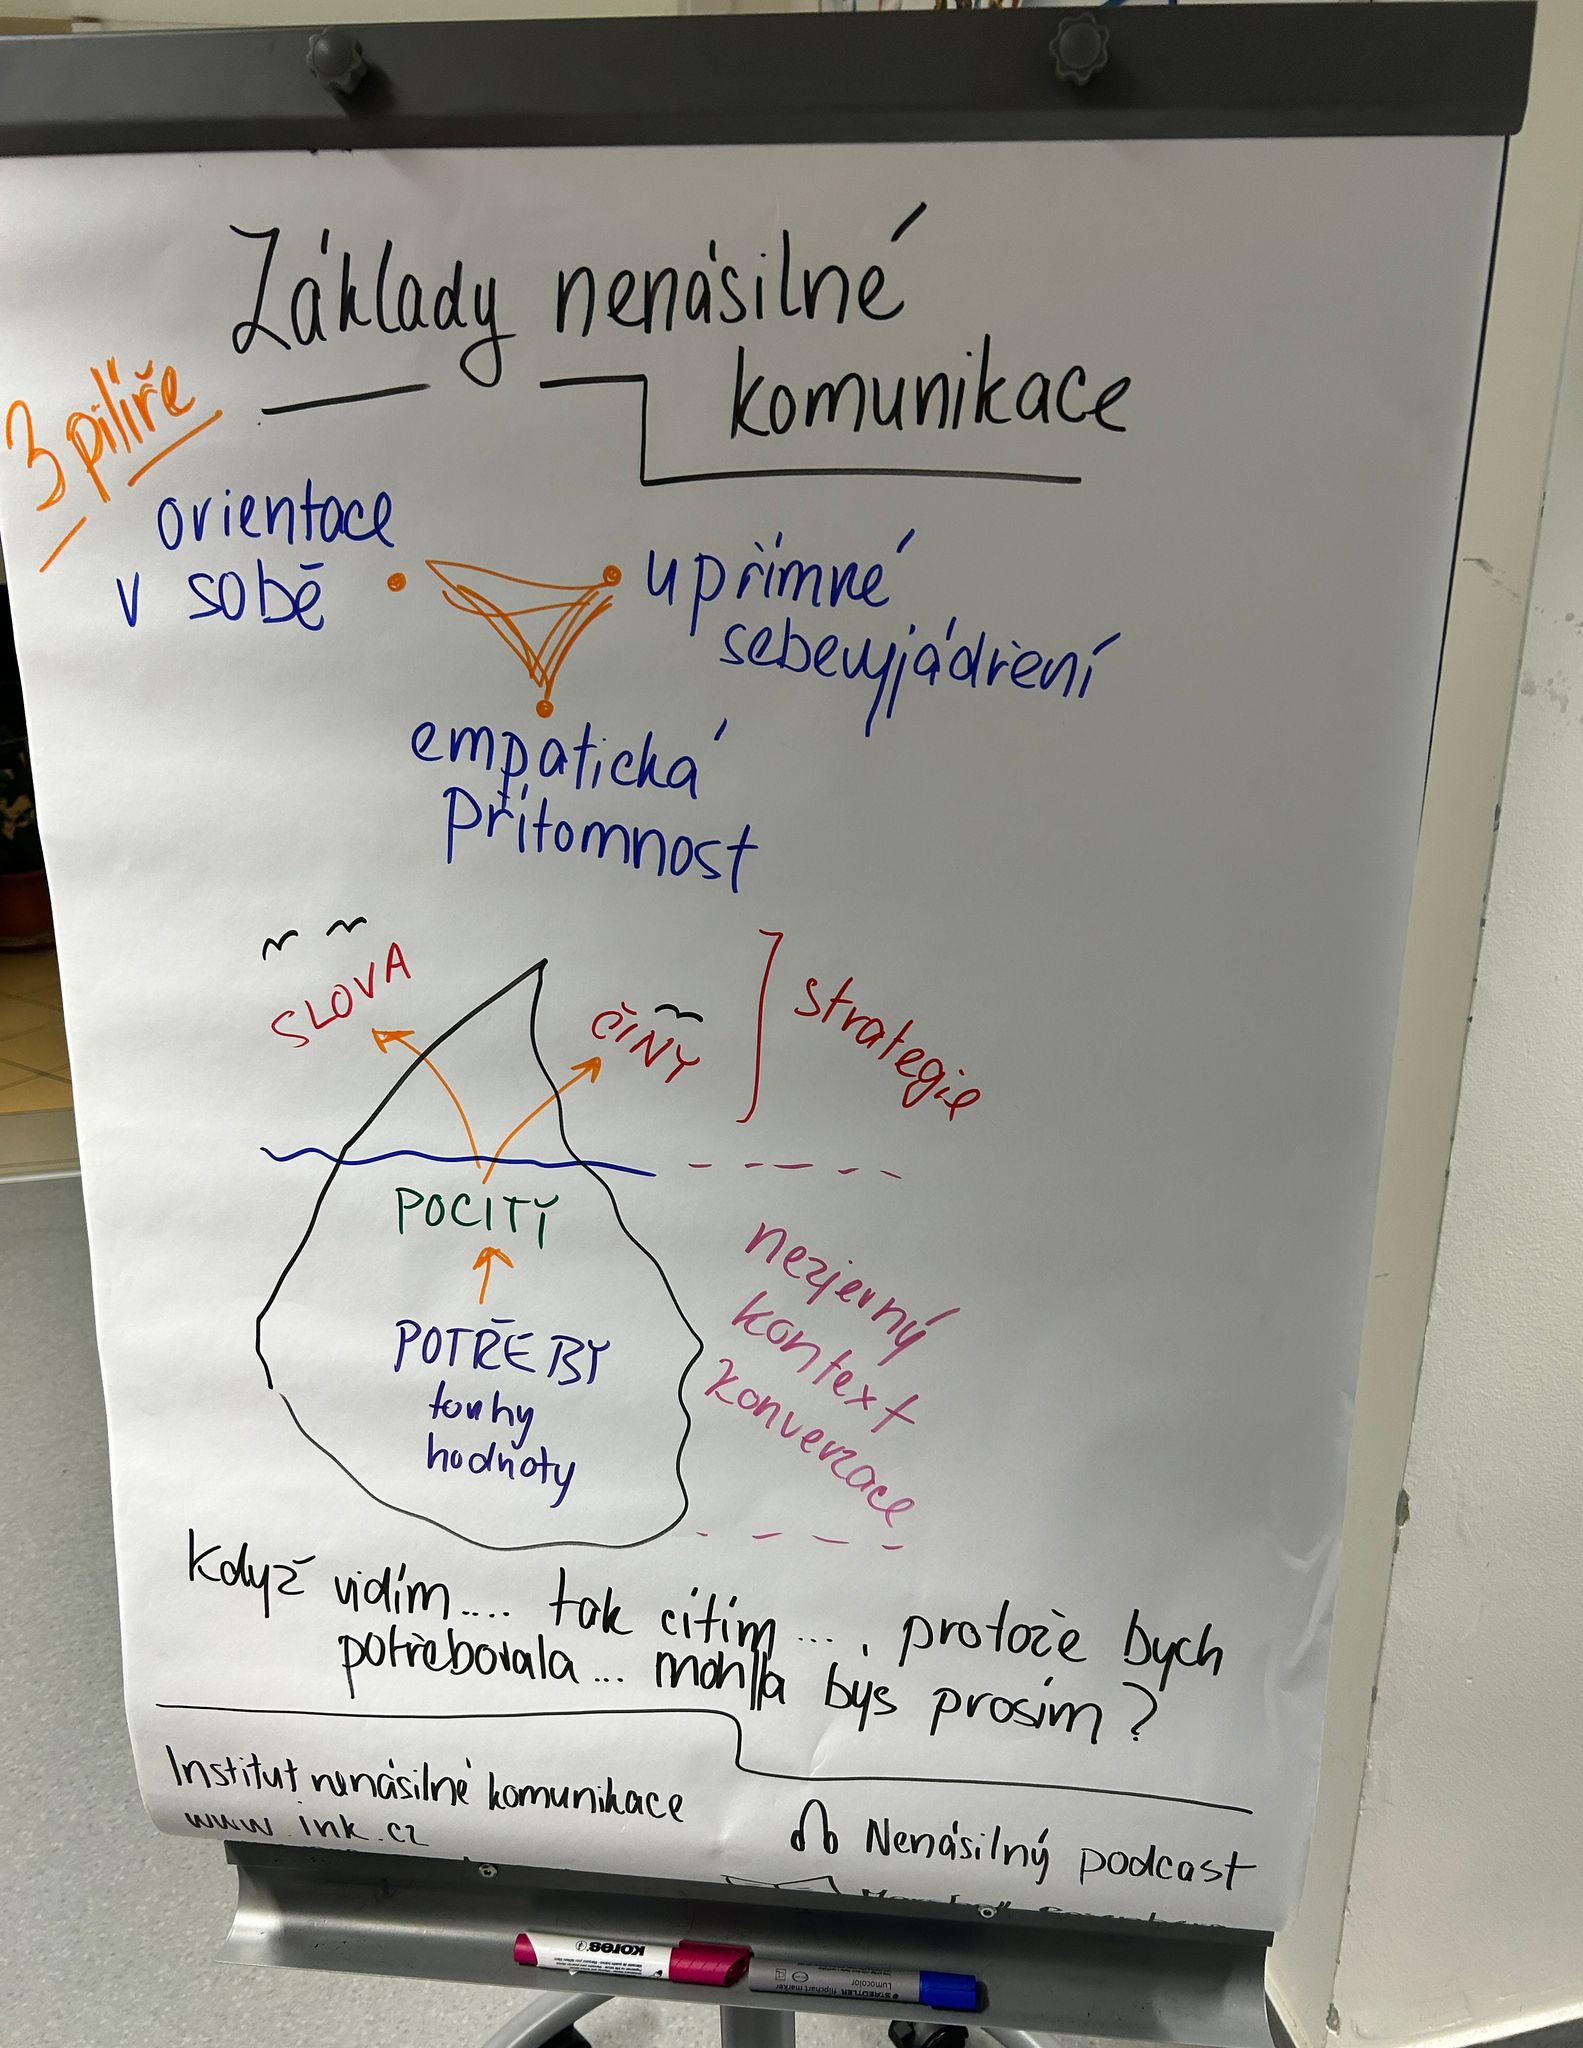 Základy nenásilné
komunikace
3 pilíře
orientace
v sobě
upřímné
sebevyjádření
empatická
přítomnost
SLOVA
ČINY
strategie
POCITY
POTŘEBY
touhy
hodnoty
nezjevný
kontext
konverzace
Když vidím.... tak cítím...., protože bych
potřebovala... mohla bys prosím?
Institut nenásilné komunikace
www.ink.cz
Nenásilný podcast
KORES
STAEDTLER flipchart marker
Lumocolor